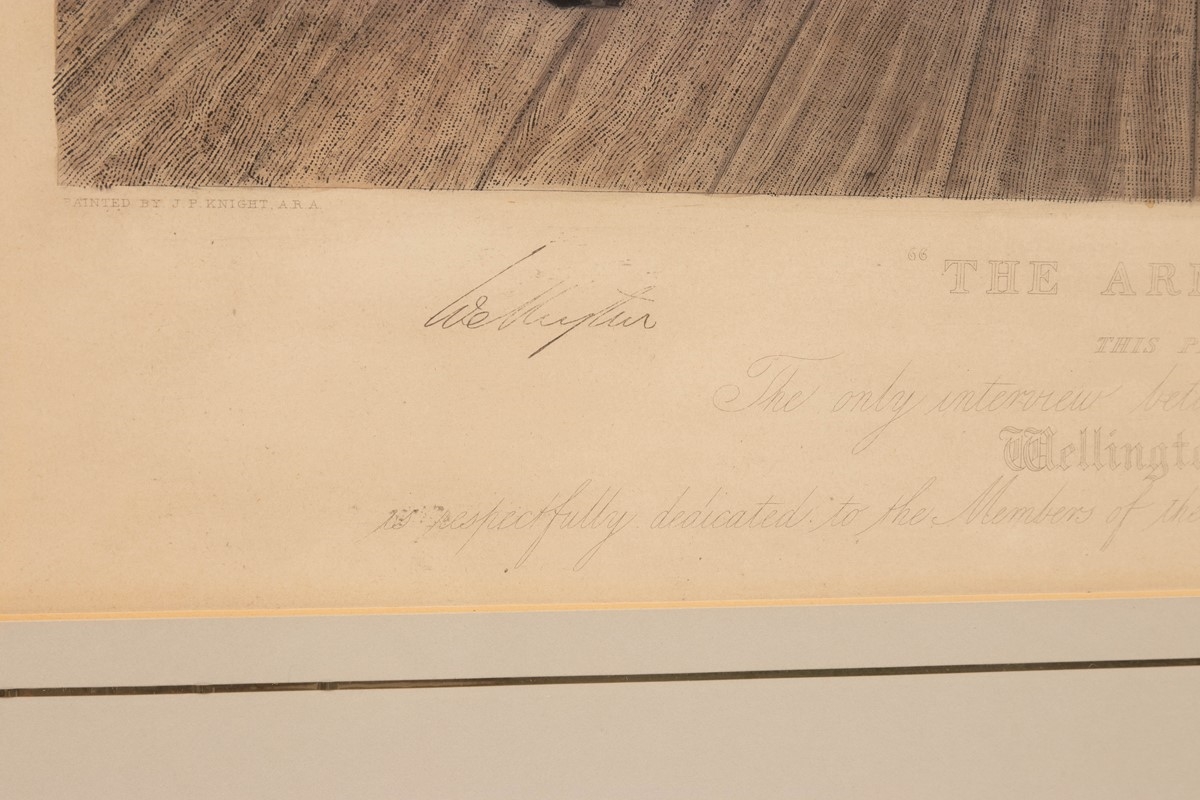 PAINTED BY J. P. KNIGHT, A.R.A.
Wellington
"THE AR
THIS P
The only interview bet
Wellingt
is respectfully dedicated to the Members of the